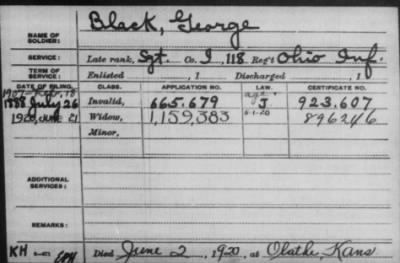 Black, George
NAME OF
SOLDIER:
SERVICE: Late rank, Sgt. Co. I, 118 Reg't Ohio Inf.
TERM OF
SERVICE: Enlisted , 1 Discharged , 1
DATE OF FILING. CLASS. APPLICATION NO. LAW. CERTIFICATE NO.
1907-Feb. 18
1888 July 26 Invalid, 665.679 J 923.607
1920, JUNE 21 Widow, 1,159,383 5-1-20 896246
Minor,
ADDITIONAL
SERVICES:
REMARKS:
KH Died June 2, 1920, at Olathe Kans